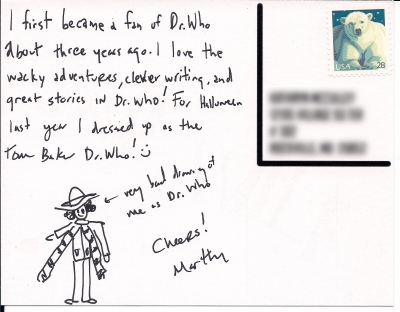 I first became a fan of Dr. Who
about three years ago. I love the
wacky adventures, clever writing, and
great stories in Dr. Who! For Halloween
last year I dressed up as the
Tom Baker Dr. Who! :)
very bad drawing of
me as Dr. Who
Cheers!
USA 28